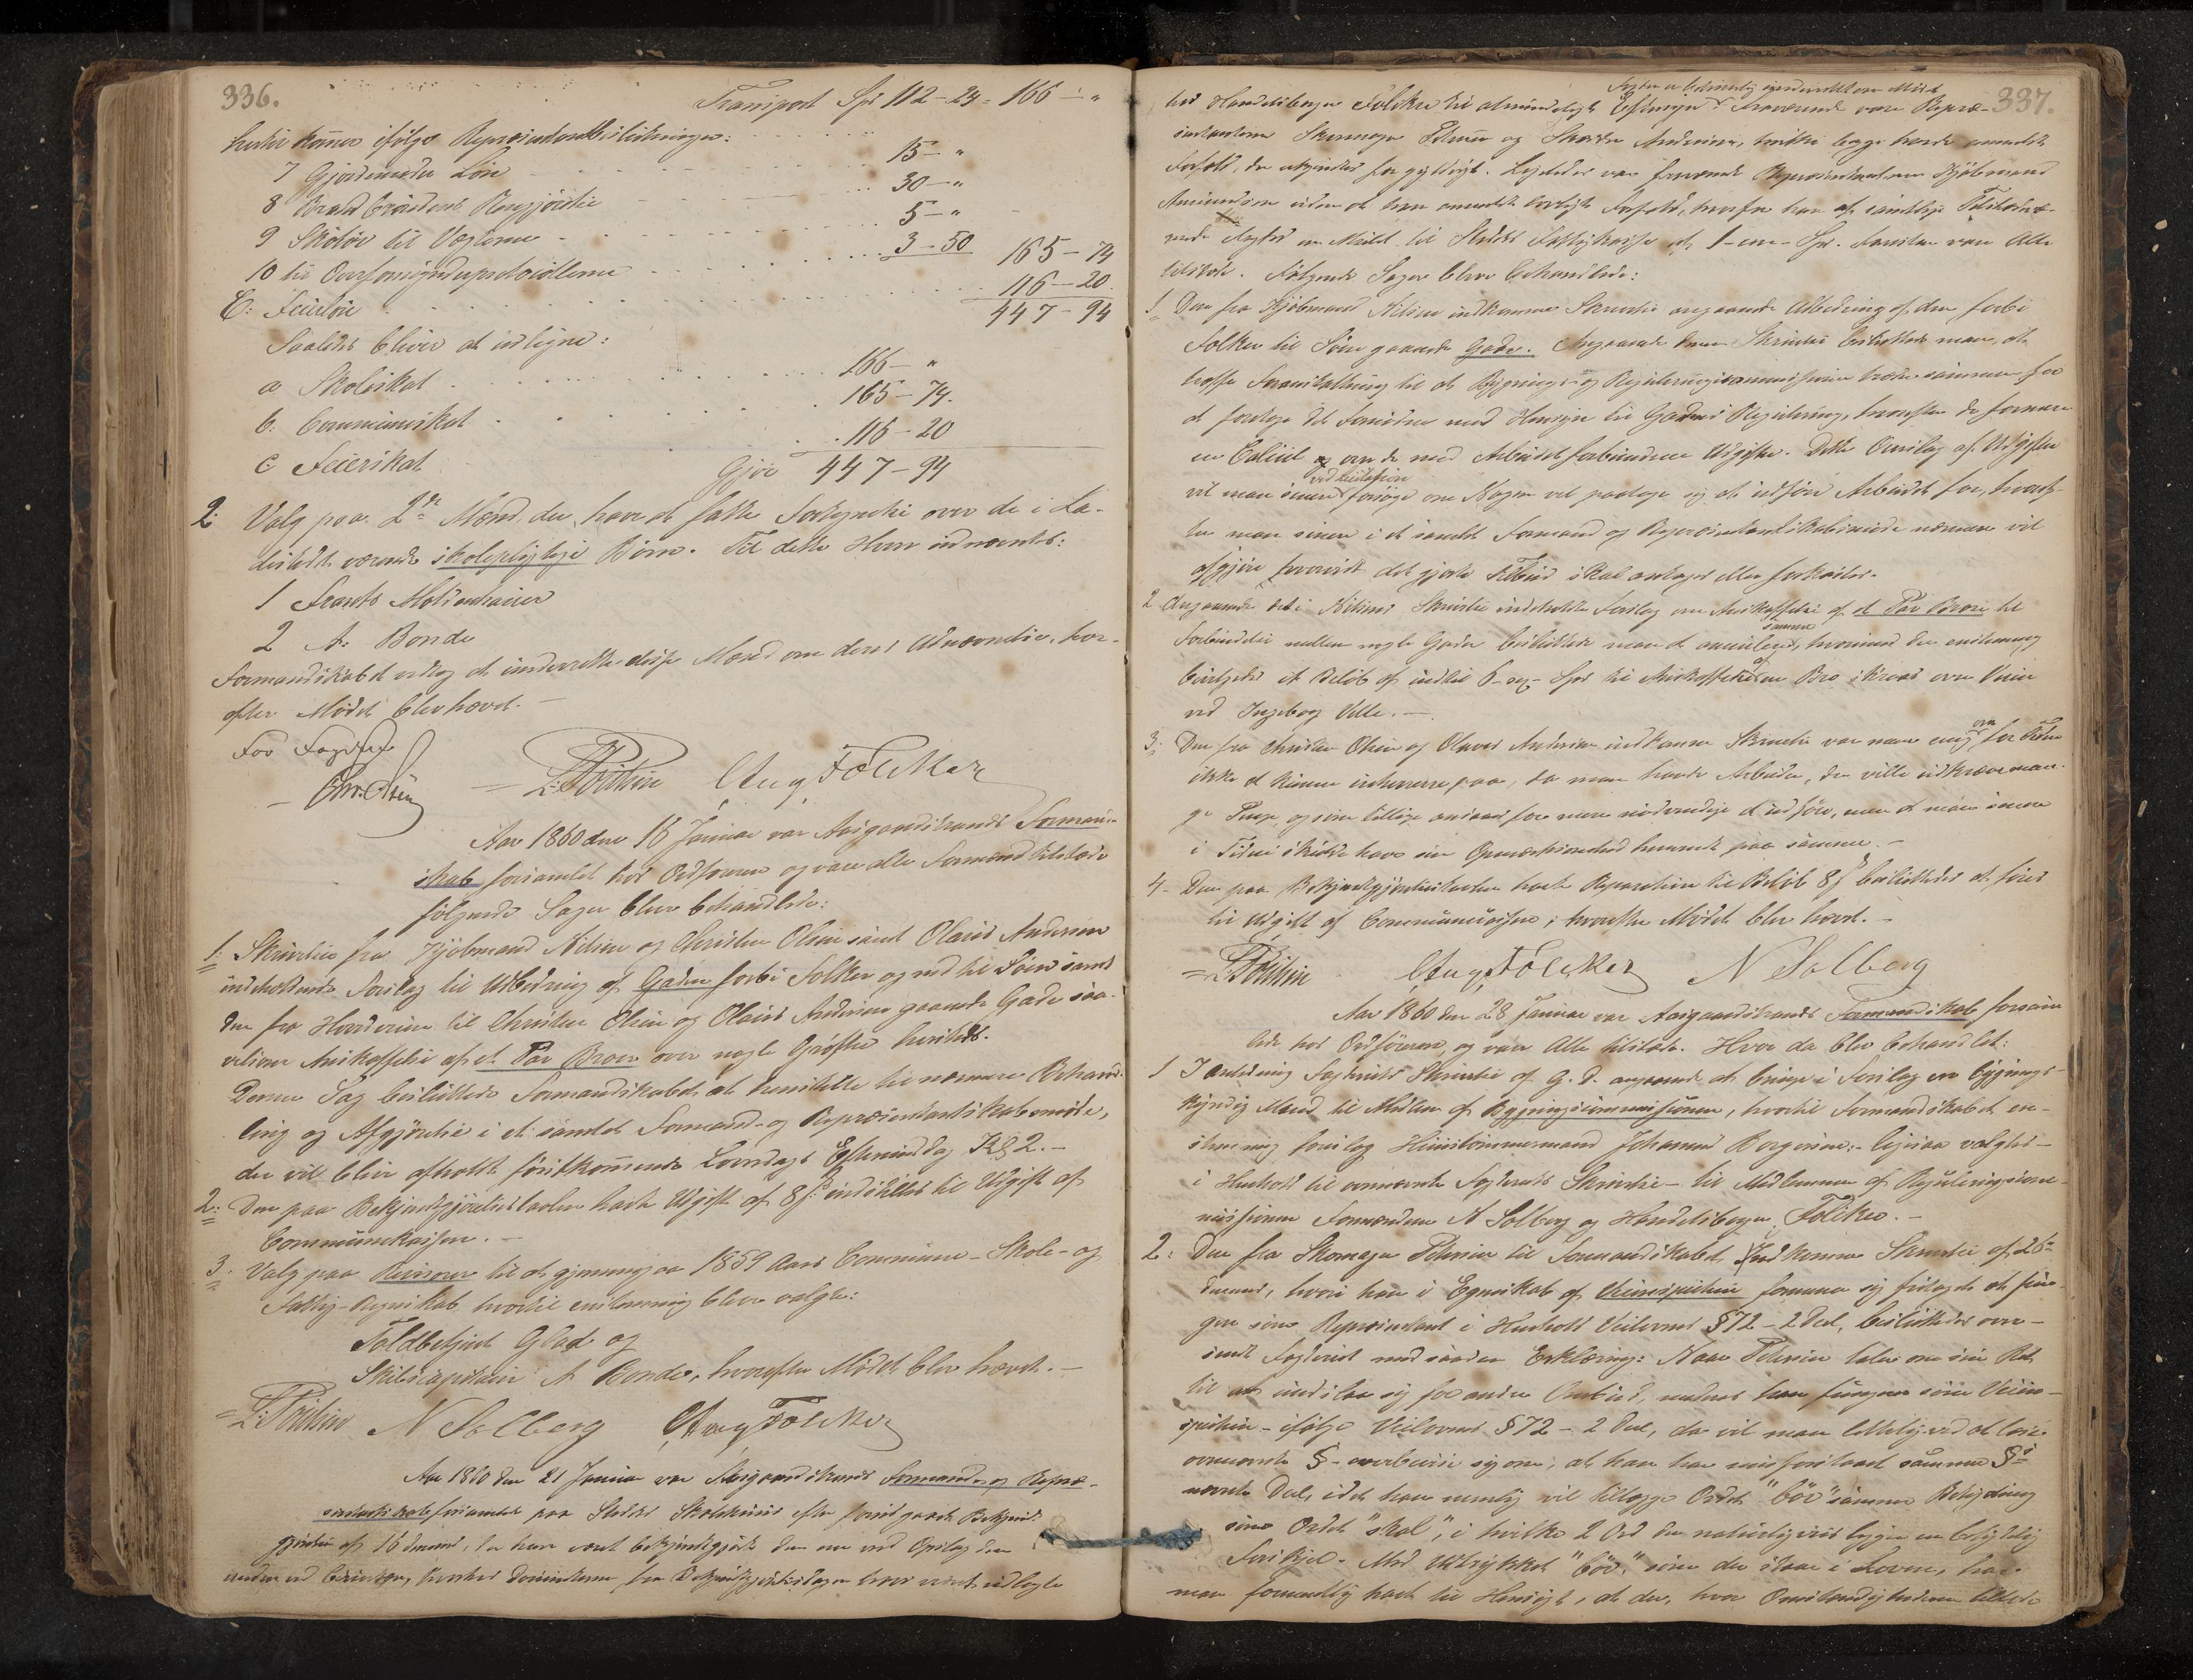 336.
Transport Spd 112-24 = 166 - "
hertil kommer ifølge Repræsentantbeslutninger:
7 Gjordemoder Løn 15 - "
8 Brandbrødens Rengjørelse 30 - "
9 Skoløn til Vægterne 5 - "
10 til Overformynderprotocollerne 3 - 50 165 - 74
C: Feierløn 116 - 20.
447 - 94
Saaledes bliver at udligne:
a Skoleskat 166 - "
b. Communeskat 165 - 74.
c Feierskat 116 - 20
Gjør 447 - 94
2 Valg paa 2de Mænd der have at føre Fortegnelse over de i La-
destedet værende skolepligtige Børn. Til dette Hverv udnævntes:
1 Frants Mathiassen
2 A. Bonde
Formandskabet vedtog at underrette disse Mænd om deres Udnævnelse, hvor-
efter Mødet blev hævet. -
For Fogden
Chr. Olsen L. Poulsen Aug Foelcker
Aar 1860 den 16 Januar var Aasgaardstrands Forman-
skab forsamlet hos Ordføreren og vare alle Formænd tilstede
følgende Sager bleve behandlede:
1. Skrivelse fra Kjøbmand Nilsen og Christen Olsen samt Olaves Andersen
indeholdende Forslag til Udbedring af Gaden forbi Folker og ned til Søen samt
den fra til Christen Olsen og Olaves Andersen gaaende Gade saa-
velsom Anskaffelse af et Par Broer over nogle Grøfter heristedet.
Denne Sag besluttede Formandskabet at henstille til nærmere Behand-
ling og Afgjørelse i et samlet Formand- og Repræsentantskabsmøde,
der vil blive afholdt førstkommende Løverdags Eftermiddag Kl 2. -
2. Den paa Bekjendtgjørelsestavlen havte Udgift af 8 s. indstilles til Udgift af
Communekassen. -
3. Valg paa Revisorer til at gjennemgaa 1859 Aars Commune- Skole- og
Fattig-Regnskab hvortil enstemmig bleve valgte:
Toldbetjent Glad og
Skibscapitain A Bonde, hvorefter Mødet blev hævet. -
L. Poulsen N Solberg Aug Foelcker
Aar 1860 den 21 Januar var Aasgaardstrands Formands og Repræ-
sentantskab forsamlet paa Stedets Skolehuus efter foregaaende Bekjendt-
gjørelse af 16 dennes, der have været bekjendtgjort den ene ved Opslag den
anden ved Circulær, Decumenterne fra Bekjendtgjørelsesdagen have været udlagte
337.
hos Handelsborger Folker til almindeligt Eftersyn. Fraværende vare Repræ-
sentanterne Skomager Petersen og Andersen, hvilke begge havde anmeldt
Forfald, der ansees for gyldigt. Ligeledes var fraværende Repræsentanten Kjøbmand
Amundsen uden at have anmeldt lovligt Forfald, hvorfor han af samtlige Tilstedevæ-
rende ilagdes en Mulct til Stedets Fattigkasse af 1 - een - Spd. Forresten vare Alle
tilstede. Følgende Sager bleve behandlede:
1 Den fra Kjøbmand Nilsen indkomne Skrivelse angaaende Udbedring af den forbi
Folker til Søen gaaende Gade. Angaaende denne Skrivelse besluttede man, at
træffe Foranstaltning til at Bygnings- og Reguleringscommissionen træder sammen for
at foretage det Fornødne med Hensyn til Gadens Regulering, hvorefter de formere
en Calcul over de med Arbeidet forbundne Udgifter. Dette Overslag af Udgifter
vil man senere ved Licitation forsøge om Nogen vil paatage sig at udføre Arbeidet for, hvoref-
ter man senere i et samlet Formand og Repræsentantskabsmøde nærmere vil
afgjøre hvorvidt det gjorte Tilbud skal antages eller forkastes.
2 Angaaende det i Nilsens Skrivelse indeholdte Forslag om Anskaffelse af et Par Broer til
Forbindelse mellem nogle Gader besluttede man at annullere samme, hvorimod der enstemmig
bevilgedes et Beløb af indtil 6 - sex - Spd til Anskaffelse af en Bro skraas over Veien
ved Ingeborg Ville. -
3. Den fra Christen Olsen og Olaves Andersen indkomne Skrivelse var man enig om for Tiden
ikke at kunne indvirke paa, da man havde Arbeider, der ville udkræve man-
ge Penge og som tillige ansaaes for mere nødvendige at udføre, men at man senere
i Tiden skulde have sin Opmærksomhed henvendt paa samme. -
4. Den paa Bekjendtgjørelsestavlen havte Reparation til Beløb 8 s besluttedes at føres
til Udgift af Communecassen; hvorefter Mødet blev hævet. -
L. Poulsen Aug Foelcker N Solberg
Aar 1860 den 28 Januar var Aasgaardstrands Formandskab forsam-
let hos Ordføreren, og vare Alle tilstede. Hvor da blev behandlet:
1 I Anledning Fogderiets Skrivelse af G. D. angaaende at bringe i Forslag en bygnings-
kyndig Mand til Medlem af Bygningscommissionen, hvortil Formandskabet en-
stemmig foreslog Huustømmermand Johannes Borgersen: - ligesaa valgtes -
i Henhold til ovennævnte Fogderiets Skrivelse - til Medlemmer af Reguleringscom-
missionen Formændene N Solberg og Handelsborger Folker. -
2: Den fra Skomager Petersen til Formandskabet indkomne Skrivelse af 26de
dennes, hvori han i Egenskab af Veiinspecteur formener sig fritaget at fun-
gere som Repræsentant i Henhold Veilovens § 72 - 2 Deel, besluttedes over-
sendt Fogderiet med saadan Erklæring: Naar Petersen taler om sin Ret
til at undslaa sig for andre Ombud, medens han fungerer som Veiin-
specteur - ifølge Veilovens § 72 - 2 Deel, da vil man lettelig ved at læse
ovennævnte § - overbevise sig om, at han har misforstaaet samme §s
nævnte Deel, idet han nemlig vil tillægge Ordet "bør" samme Betydning
som Ordet "skal", i hvilke 2 Ord der naturligviis ligger en betydelig
Forskjel. Med Udtrykket "bør" som der staar i Loven, har
man formentlig havt til Hensigt, at der, hvor Omstændighederne tillade